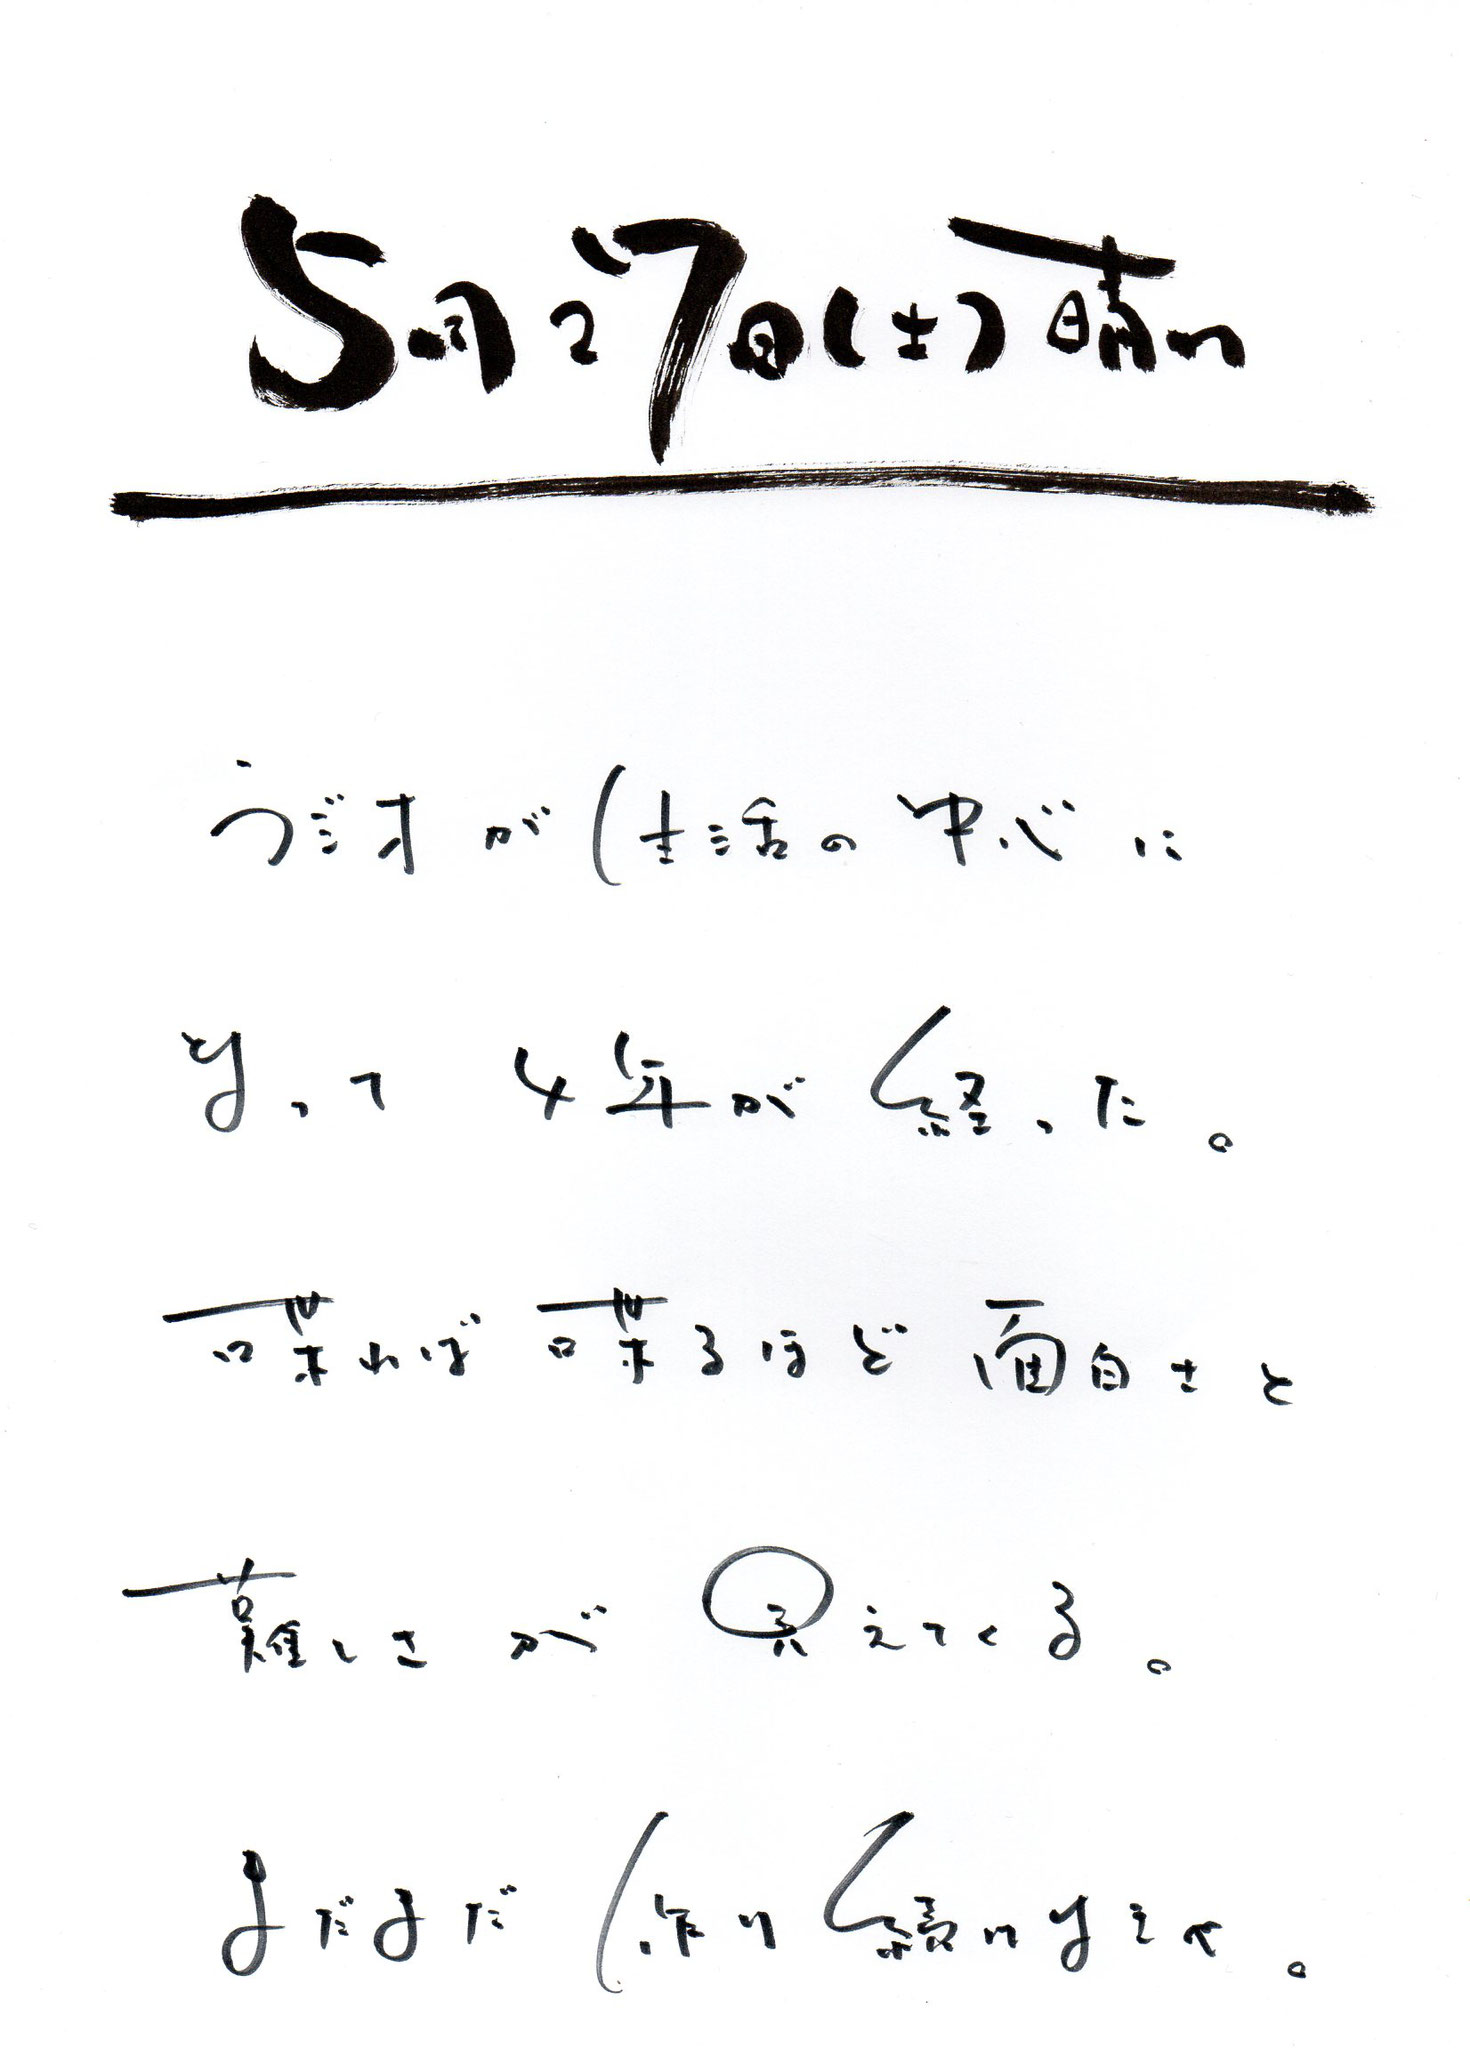 5月27日(土)晴れ
ラジオが生活の中心に
なって4年が経った。
喋れば喋るほど面白さと
難しさが見えてくる。
まだまだ作り続けなきゃ。